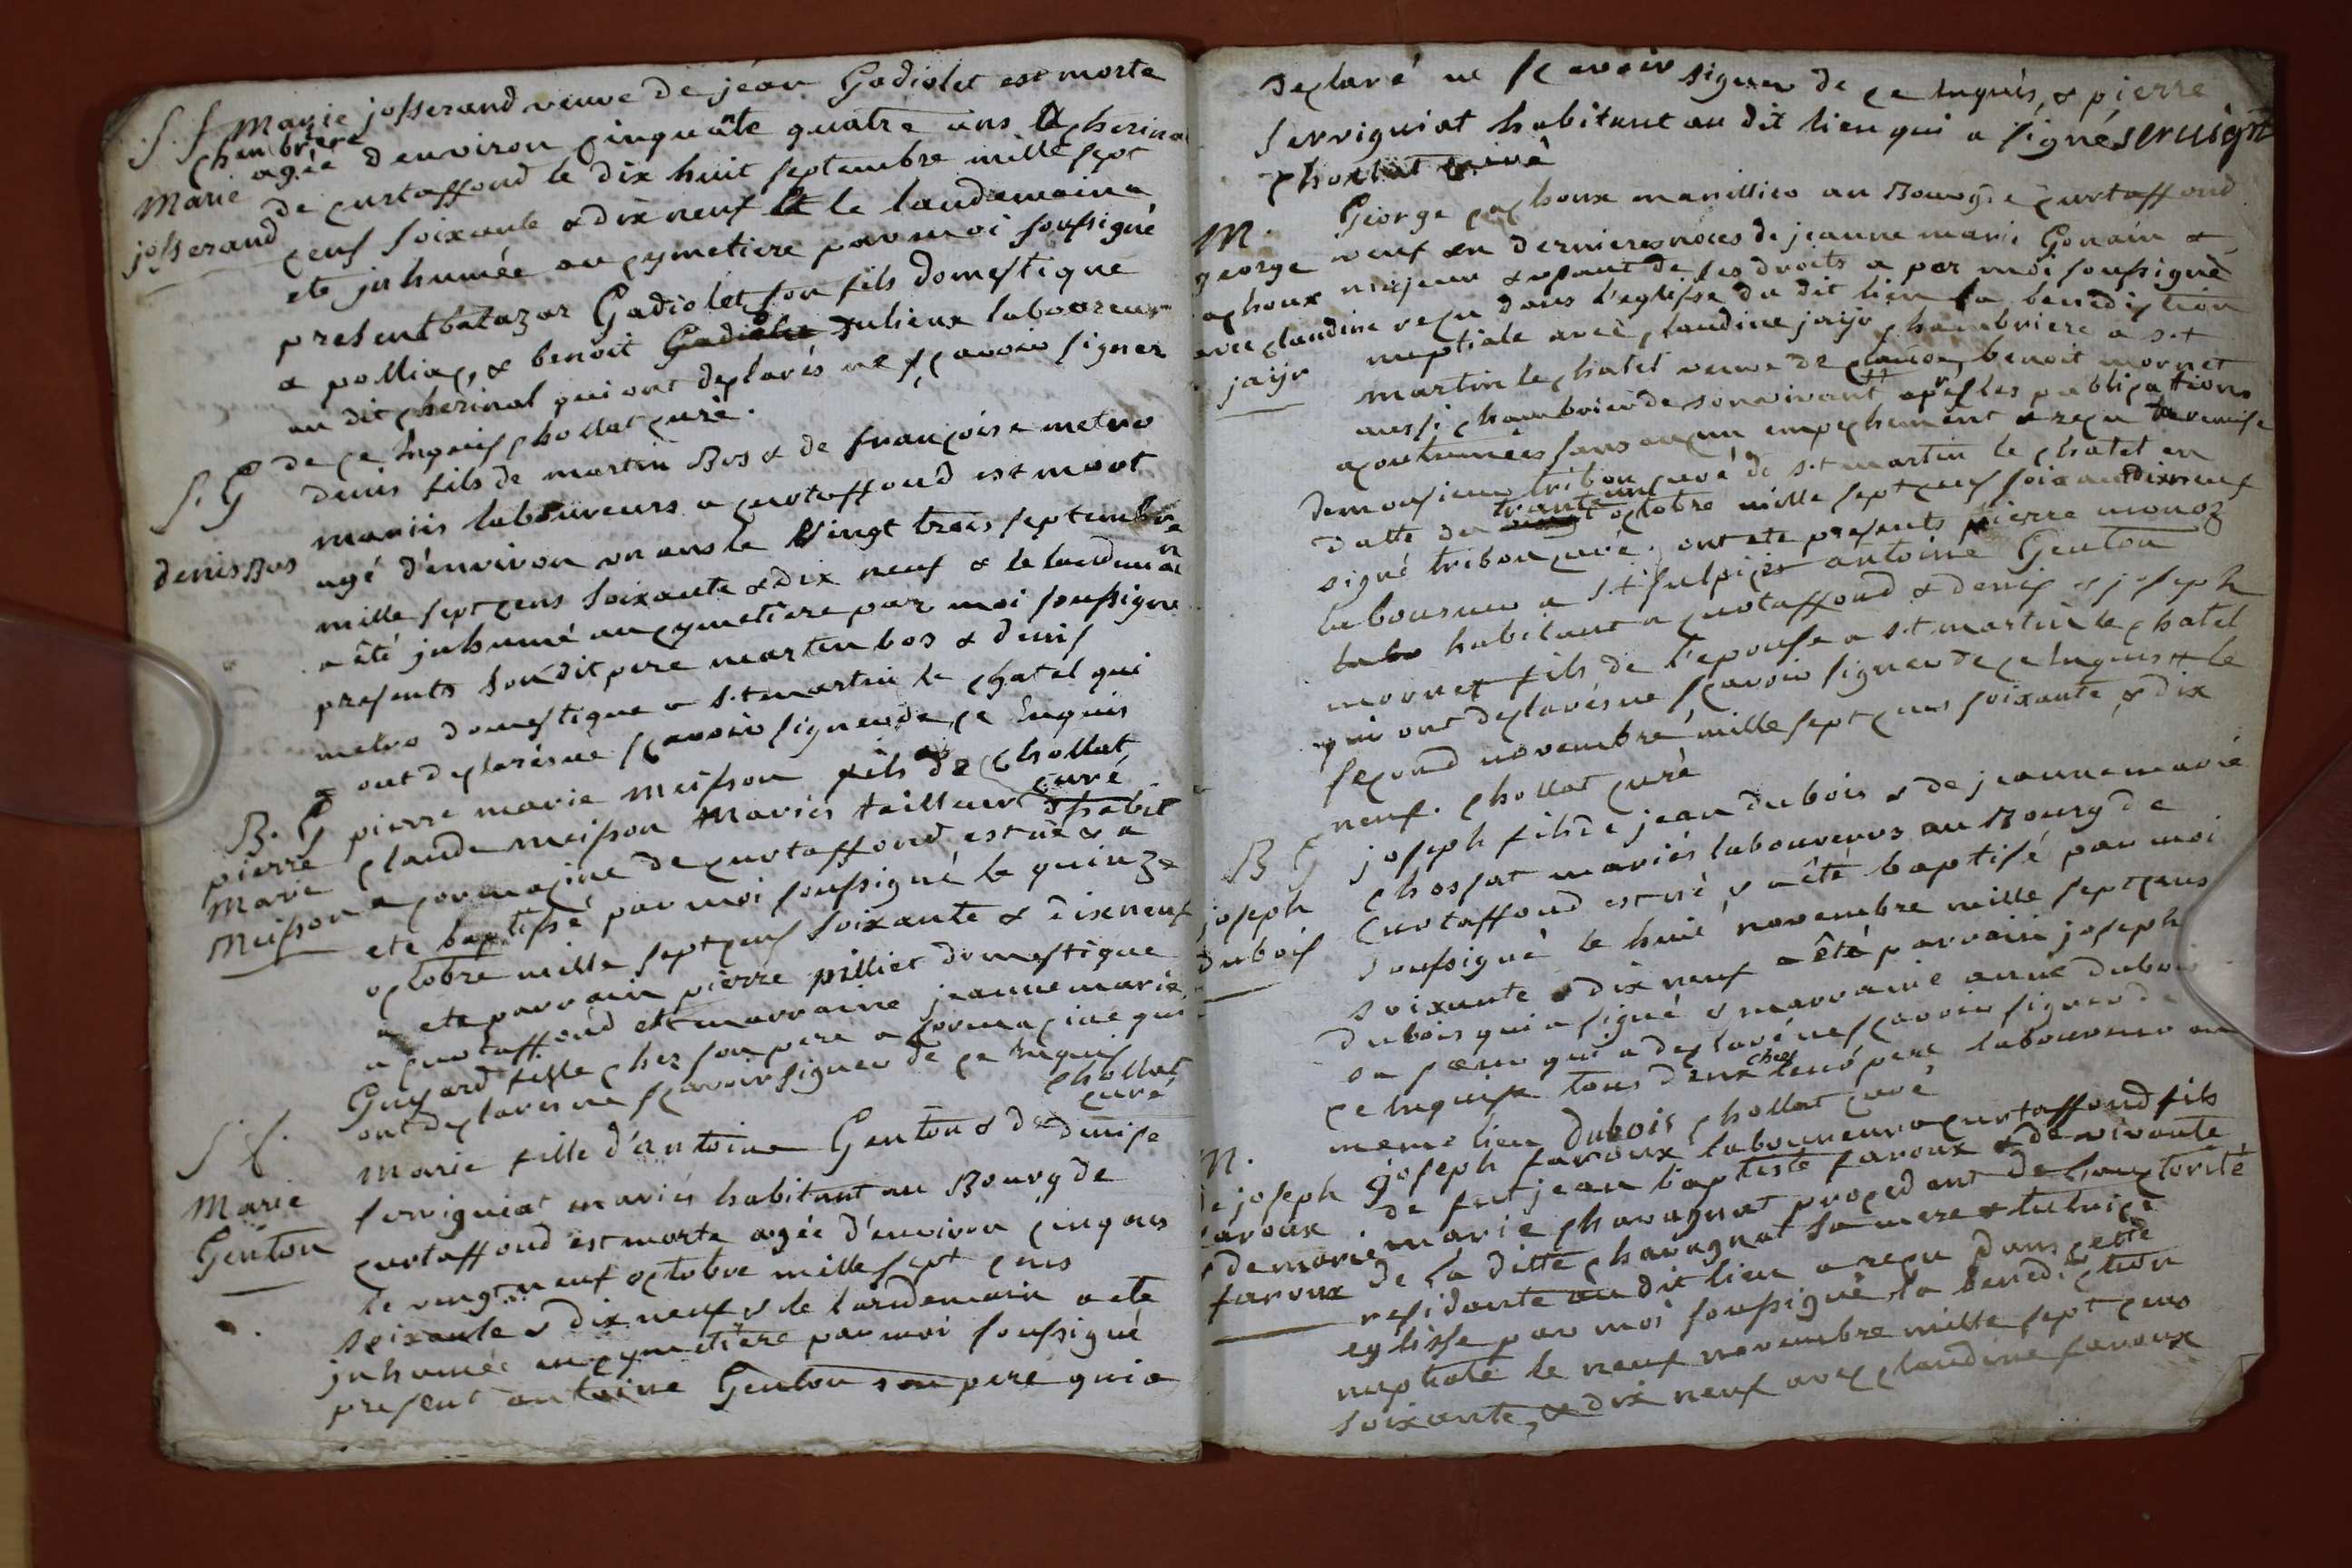 S. f Marie josserand veuve de jéan Gadiolet est morte
chambriere
Marie agée d'environ cinquãte quatre ans a cherinal
josserand de curtaffond le dix huit septembre mille sept
cens soixante & dix neuf & le landemain a
eté inhumée au cymetiere par moi soussigné
present batazar Gadiolet son fils domestique
a polliac, & benoit Julieux laboureur
au dit cherinal qui ont declarés ne sçavoir signer
de ce enquis chollat curé.
S. G denis fils de martin Bos & de françoise metro
mariés laboureurs a curtaffond est mort
denis Bos agé d'environ un ans le vingt trois septembre
mille sept cens soixante & dix neuf & le landemain
a été inhumé au cymetiere par moi soussigné
presents son dit pere marten bos & denis
metro domestique a s.t martin le chatel qui
ont declarés ne sçavoir signer de ce enquis
chollat curé
B. G pierre marie meisson fils de
pierre claude meisson mariés tailleur d'habit
Marie
Meisson a cormazine de curtaffond est né & a
eté baptissé par moi soussigné le quinze
octobre mille sept cens soixante & dix neuf
a eté parrain pierre pilliet domestique
a curtaffond et marraine jeanne marie
Guyard fille chez son pere a cormacine qui
ont declarés ne sçavoir signer de ce enquis
chollat curé
S. f. marie fille d'antoine Genton & de denise
Marie serviguiat mariés habitant au Bourg de
Genton curtaffond est morte agée d'environ cinq ans
le vingt neuf octobre mille sept cens
soixante & dix neuf & le landemain a eté
inhumée au cymetiere par moi soussigné
present antoine Genton son pere qui a
declaré ne sçavoir signer de ce enquis, & pierre
serviguiat habitant au dit lieu qui a signé
chollat curé
M. George cachoux manillier au Bourg de curtaffond
george veuf en dernieres noces de jeanne marie Gonain &
cachoux majeur & usant de ses droits a par moi soussigné
avec claudine reçu dans l'eglisse du dit lieu la benediction
jaijr nuptiale avec claudine jaijr chambriere a s.t
martin le chatel veuve de benoit mornet
aussi chambrier de son vivant apres les publications
acoutumées sans aucun empechement & reçu la remise
de monsieur tribou curé de s.t martin le chatel en
datte du trante un octobre mille sept cens soixante dix neuf
signé tribou curé. ont eté presents pierre monoz
laboureur a s.t sulpice antoine Genton
habitant a curtaffond & denis & joseph
mornet fils de l'epouse a s.t martin le chatel
qui ont declarés ne sçavoir signer de ce enquis le
second novembre mille sept cens soixante & dix
neuf. chollat curé
B G joseph fils de jean dubois & de jeanne marie
joseph chossat mariés laboureurs au Bourg de
dubois curtaffond est né, & a été baptisé par moi
soussigné le huit novembre mille sept cens
soixante & dix neuf a été parrain joseph
dubois qui a signé & marraine anne dubois
sa soeur qui a declaré ne sçavoir signer de
ce enquise tous deux chez leur pere laboureur au
meme lieu Dubois chollat curé
M. joseph faroux laboureur a curtaffond fils
de joseph de fut jean baptiste faroux & de vivante
faroux marie chavagnat procedant de l'auctorité
& de marie de la ditte chavagnat sa mere & tutrice
faroux residante au dit lieu a reçu dans cette
eglisse par moi soussigné la benediction
nuptiale le neuf novembre mille sept cens
soixante, & dix neuf avec claudine faroux